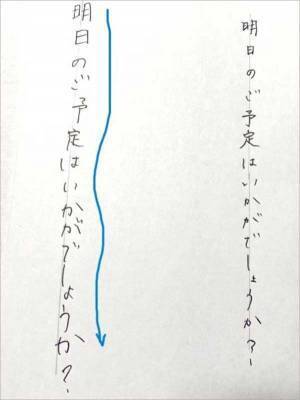 明日のご予定はいかがでしょうか？
明日のご予定はいかがでしょうか？